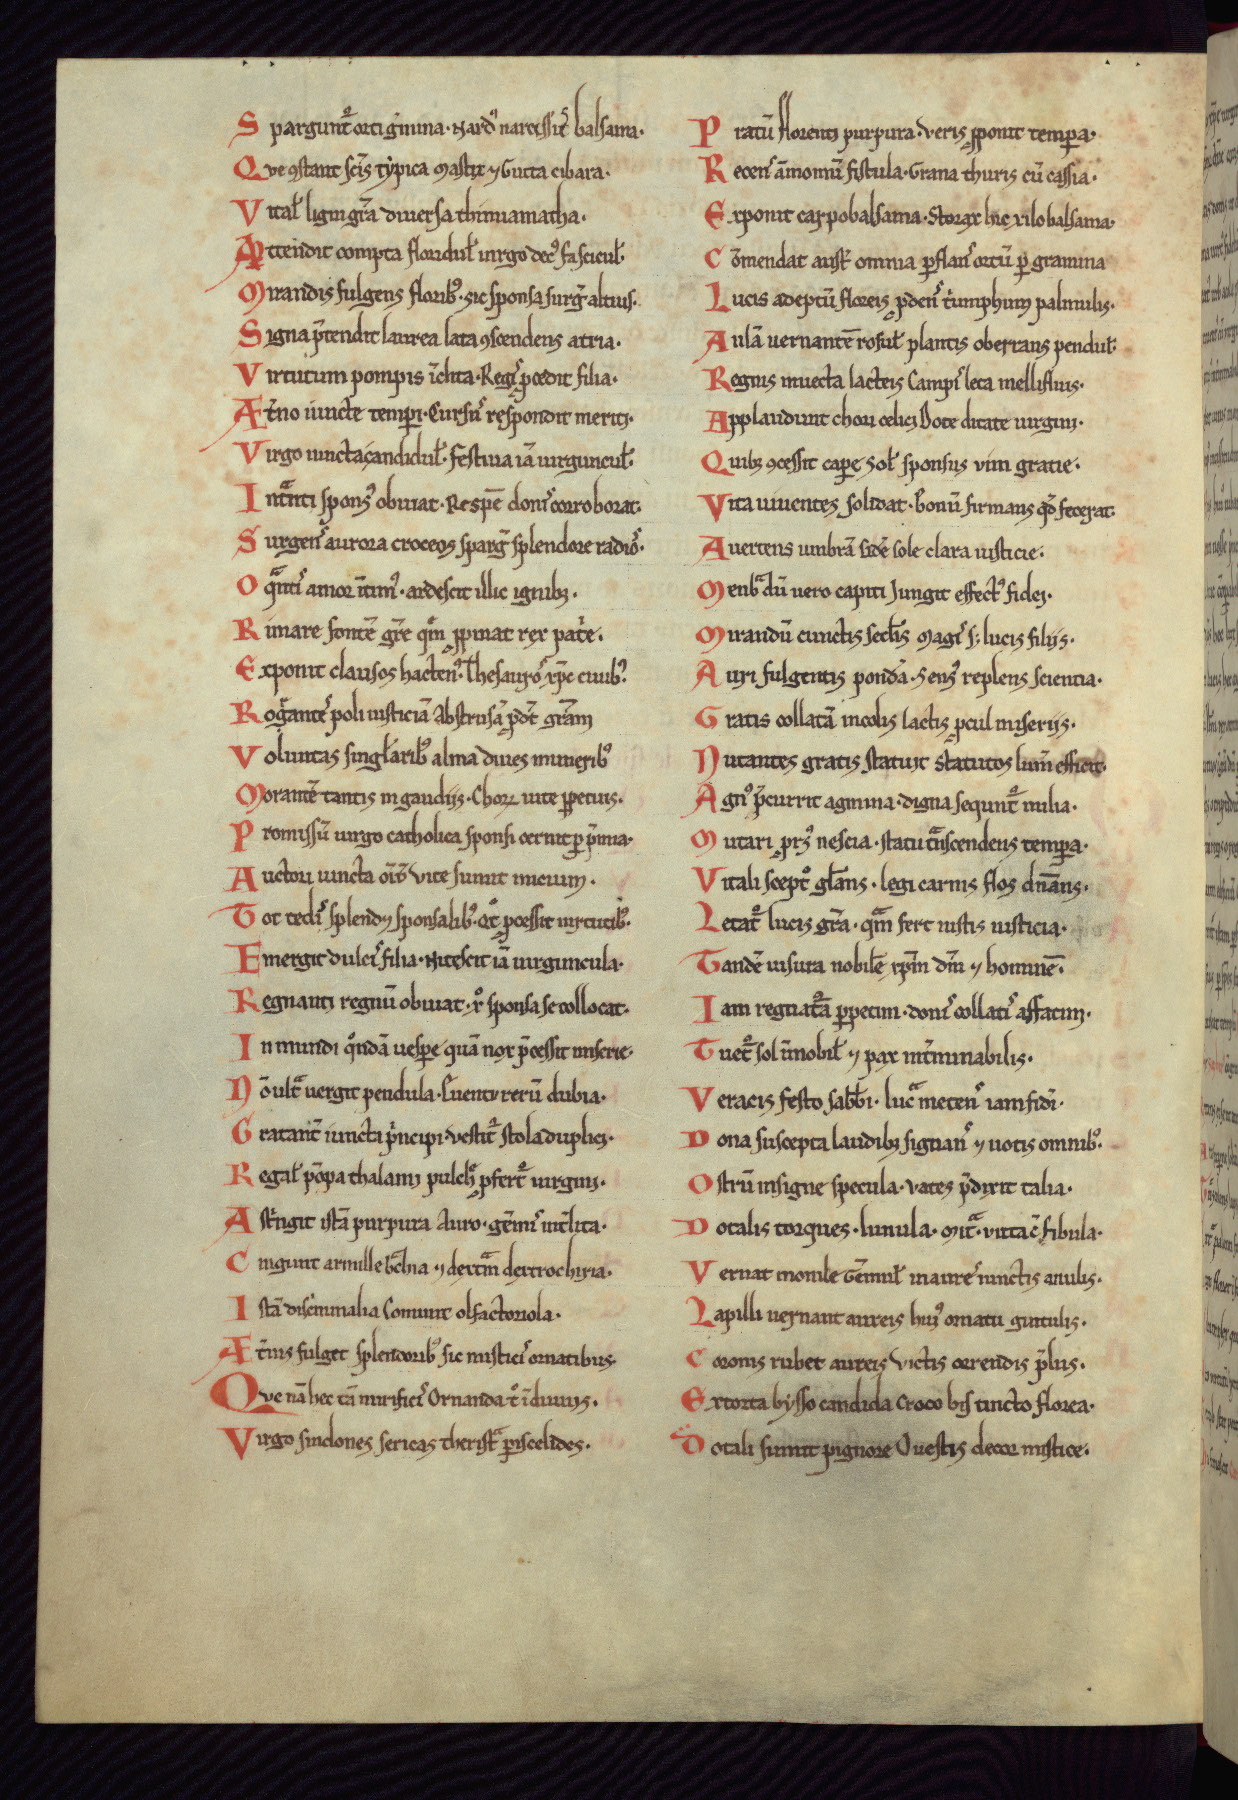 Sparguntᷣ orti gͥmina· Nardꝰ narcissitꝰ balsama·
Que ꝯstant scīs typica Mastix ⁊ Gutta cibara·
Vitał ligni gr̄a diuersa thimiamatha·
Attendit compta floridul̃ uirgo decꝰ fascicul̃·
Mirandis fulgens floribꝰ· sic sponsa surg̃ altius·
Signa p̄tendit laurea lata ꝯscendens atria·
Virtutum pompis īclita· Regiˢ ꝓcedit filia·
Æt̄no iuncte temꝑi· Cursuˢ respondit meriti·
Virgo iuncta candidul̃· festiua iā uirguncul̃·
Intᷓnti sponsꝰ obuiat· Respē doniˢ corroborat·
Surgenˢ aurora croceos sparg̃ splendore radioˢ·
O qᷓntiˢ amor ītimꝰ· ardescit illic ignibꝫ·
Rimare fontē gr̄e qᷓm ꝓpinat rex pat̄e·
Exponit clausos hactenꝰ· Thesauroˢ xp̄c ciuibꝰ·
Rogᷓnteˢ poli iusticiā Abstrusā ꝓdit gr̄am
Voluntas singl̃aribꝰ alma diues muneribꝰ
Morant̄ tantis in gaudiis· Choꝝ uite ꝑpetuis·
Promissū uirgo catholica sponsi cernit ꝑ p̄mia·
Auctori iuncta oīb; vite sumit inicium·
Tot tediˢ splendꝫ sponsalibꝰ· qͦt ꝓcessit uirtutibꝰ·
Emergit dulciˢ filia· Nitescit iā uirguncula·
Regnanti regnū obuiat· xͦ sponsa se collocat·
In mundi qͦndā uesꝑe quā nox p̄cessit miserie·
Nō ultᷓ uergit pendula· Euentu rerū dubia·
Gratant̄ iuncta p̄ncipi· vestitᷣ stola duplici·
Regal̃ pōpa thalami pulch̄ ꝓfertᷣ uirgini·
Ast̄ngit istā purpura Auro· gēmiˢ int̄lita·
Cingunt armille bᷓchia ⁊ dextrā dextrochiria·
Istā disc̄minalia Comunt olfactoriola·
Æt̄nis fulget splendoribꝰ sic misticiˢ ornatibus·
Que nā hec tā mirificiˢ Ornanda ēͦ īduuiis·
Virgo sindones sericas therist̄ ꝑiscelides·
Pratū florenti purpura· veris ꝓponit temꝑa·
Recenˢ āmomū fistula· Grana thuris cū cassia·
Exponit carpobalsama· Storax hic xilobalsama·
Cōmendat aust̄ omnia ꝑflanˢ ortū ꝑ gramina
Lucis adeptū floreis ꝓdenˢ t̄umphum palmulis·
Aulā uernantē rosul̃ plantis oberrans pendul̃·
Regnis inuecta lacteis Campiˢ leta mellifluis·
Applaudunt chori celici Dote ditate uirgini·
Quibꝫ ꝯcessit caꝑe Sol̃ sponsus uim gratie·
Vita uiuentes solidat· bonū firmans qd̄ fecerat·
Auertens umbrā fidē sole clara iusticie·
Menbᷓ dū uero capiti Jungit effectꝰ fidei·
Mirandū cunctis secl̄is magiˢ s; lucis filiis·
Auri fulgentis pondᷓa· Sensꝰ replens scientia·
Gratis collatā incolis lactis ꝓcul miseriis·
Nutantes gratis statuit Statutos lum̄ efficit·
Agnꝰ p̄currit agmina· digna sequntᷣ milia·
Mutari prͦsꝰ nescia· statu tᷓnscendens temꝑa·
Vitali sceptͦ gl̄ans· legi carnis flos dn̄ans·
Letatᷣ lucis gr̄a· qᷓm fert iustis iusticia·
Tandē uisura nobilē xp̄m dm̄ ⁊ hominē·
Iam regnatᷣā ꝑpetim· doniˢ collatiˢ affatim·
Tuetᷣ sol īmobil̃ ⁊ pax int̄minabilis·
Veracis festo sabb̄i· lucᷓ metenˢ iam fidī·
Dona suscepta laudibꝫ signanˢ ⁊ uotis omnibꝰ·
Ostrū insigne specula· vates p̄dixit talia·
Dotalis torques· lunula· Mitᷓ· vittac̄ fibula·
Vernat monile Gēmul̃ inaureˢ iunctis anulis·
Lapilli uernant aureis huiꝰ ornatu guttulis·
Coronis rubet aureis Victis orrendis p̄lus·
Extorta bysso candida Croco bis tincto florea·
Dotali sumit pignore O uestis decor mistice·